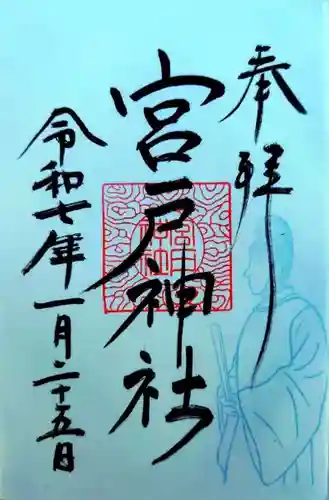 奉拝
宮戸神社
令和七年一月二十五日